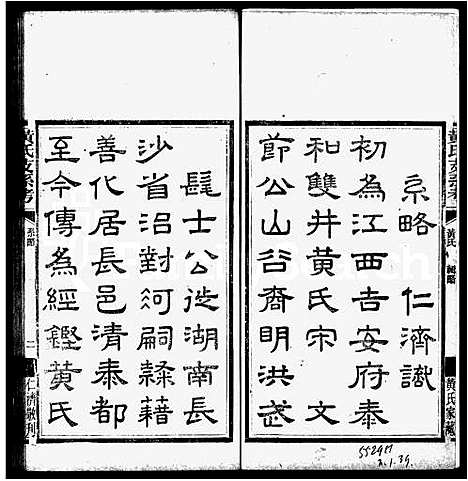 系略 仁濟識
初為江西吉安府泰
和雙井黃氏宋 文
節公山谷裔明洪武
髦士公徙湖南長
沙省沿對河嗣隸藉
善化居長邑清泰都
至今傳為經鏗黃氏
黃氏支系考
黃氏
黃氏家藏
黃氏支系考
系略
二
仁濟敬刊
552917
2.1.39.